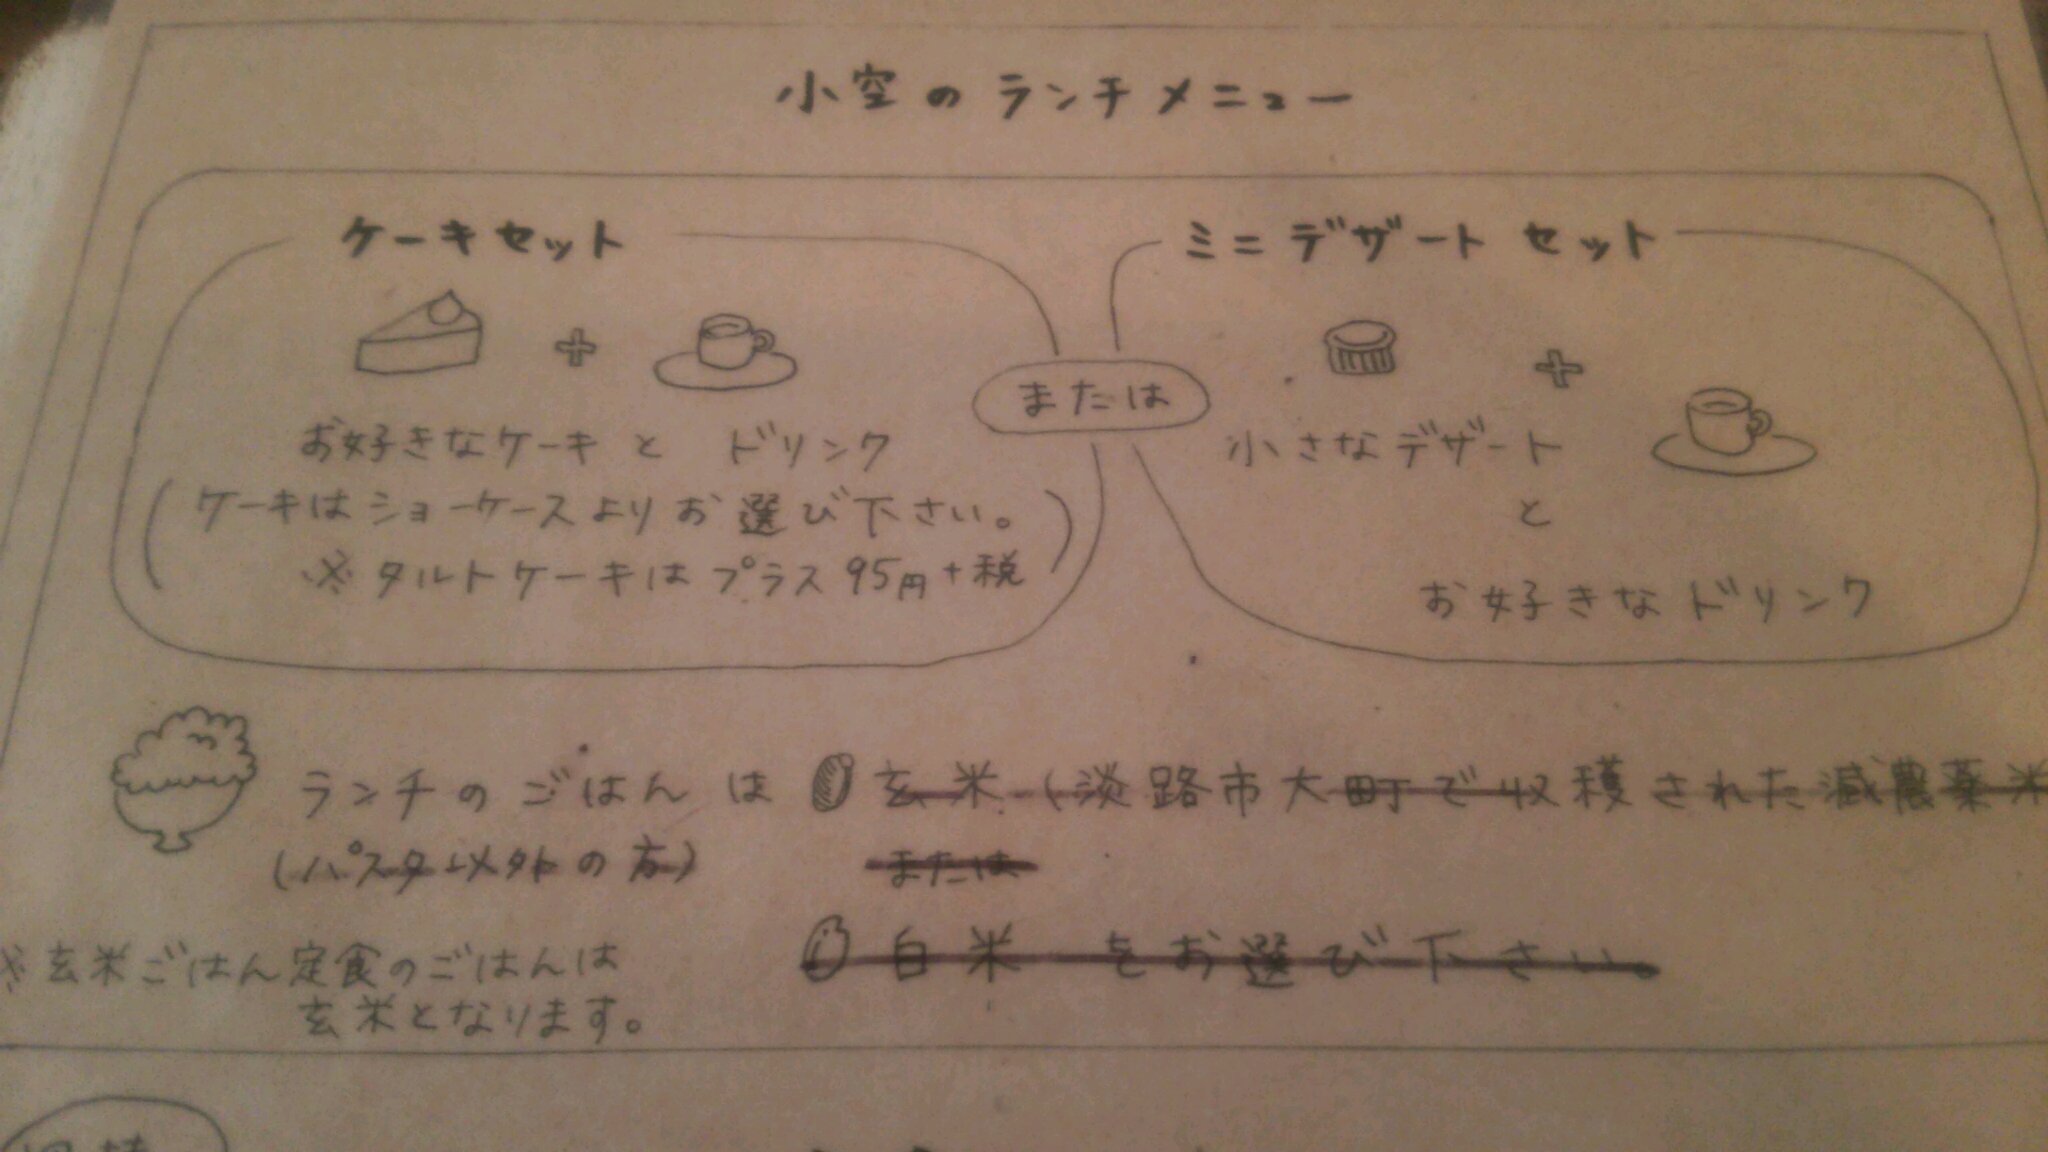 小空のランチメニュー
ケーキセット
お好きなケーキと ドリンク
(ケーキはショーケースよりお選び下さい。
※タルトケーキはプラス95円+税)
または
ミニデザート セット
小さなデザート
と
お好きなドリンク
ランチのごはんは 玄米(淡路市大町で収穫された減農薬米
(パスタ以外の方)
または
白米 をお選び下さい。
※玄米ごはん定食のごはんは
玄米となります。